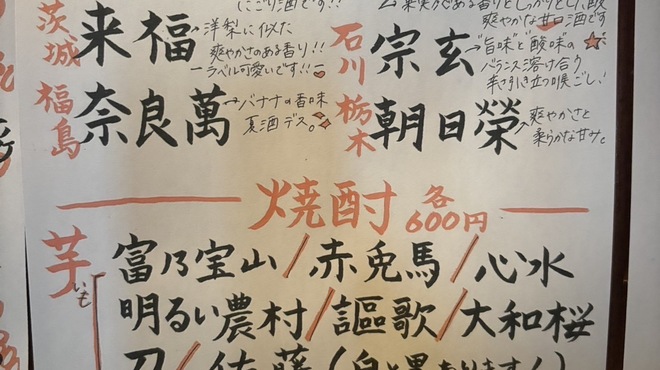 にごり酒です!!
爽やかな甘口酒です
茨城 来福
洋梨に似た
爽やかさのある香り!!
ーラベル可愛いです!!ー
石川 宗玄
"旨味"と"酸味"の
バランス溶け合う
キレ引き立つ喉ごし!
福島 奈良萬
→バナナの香味
夏酒デス。
栃木 朝日榮
爽やかさと
柔らかな甘み。
焼酎 各600円
芋 いも
富乃宝山/赤兎馬/心水
明るい農村/謳歌/大和桜
佐藤(白と黒あります!)